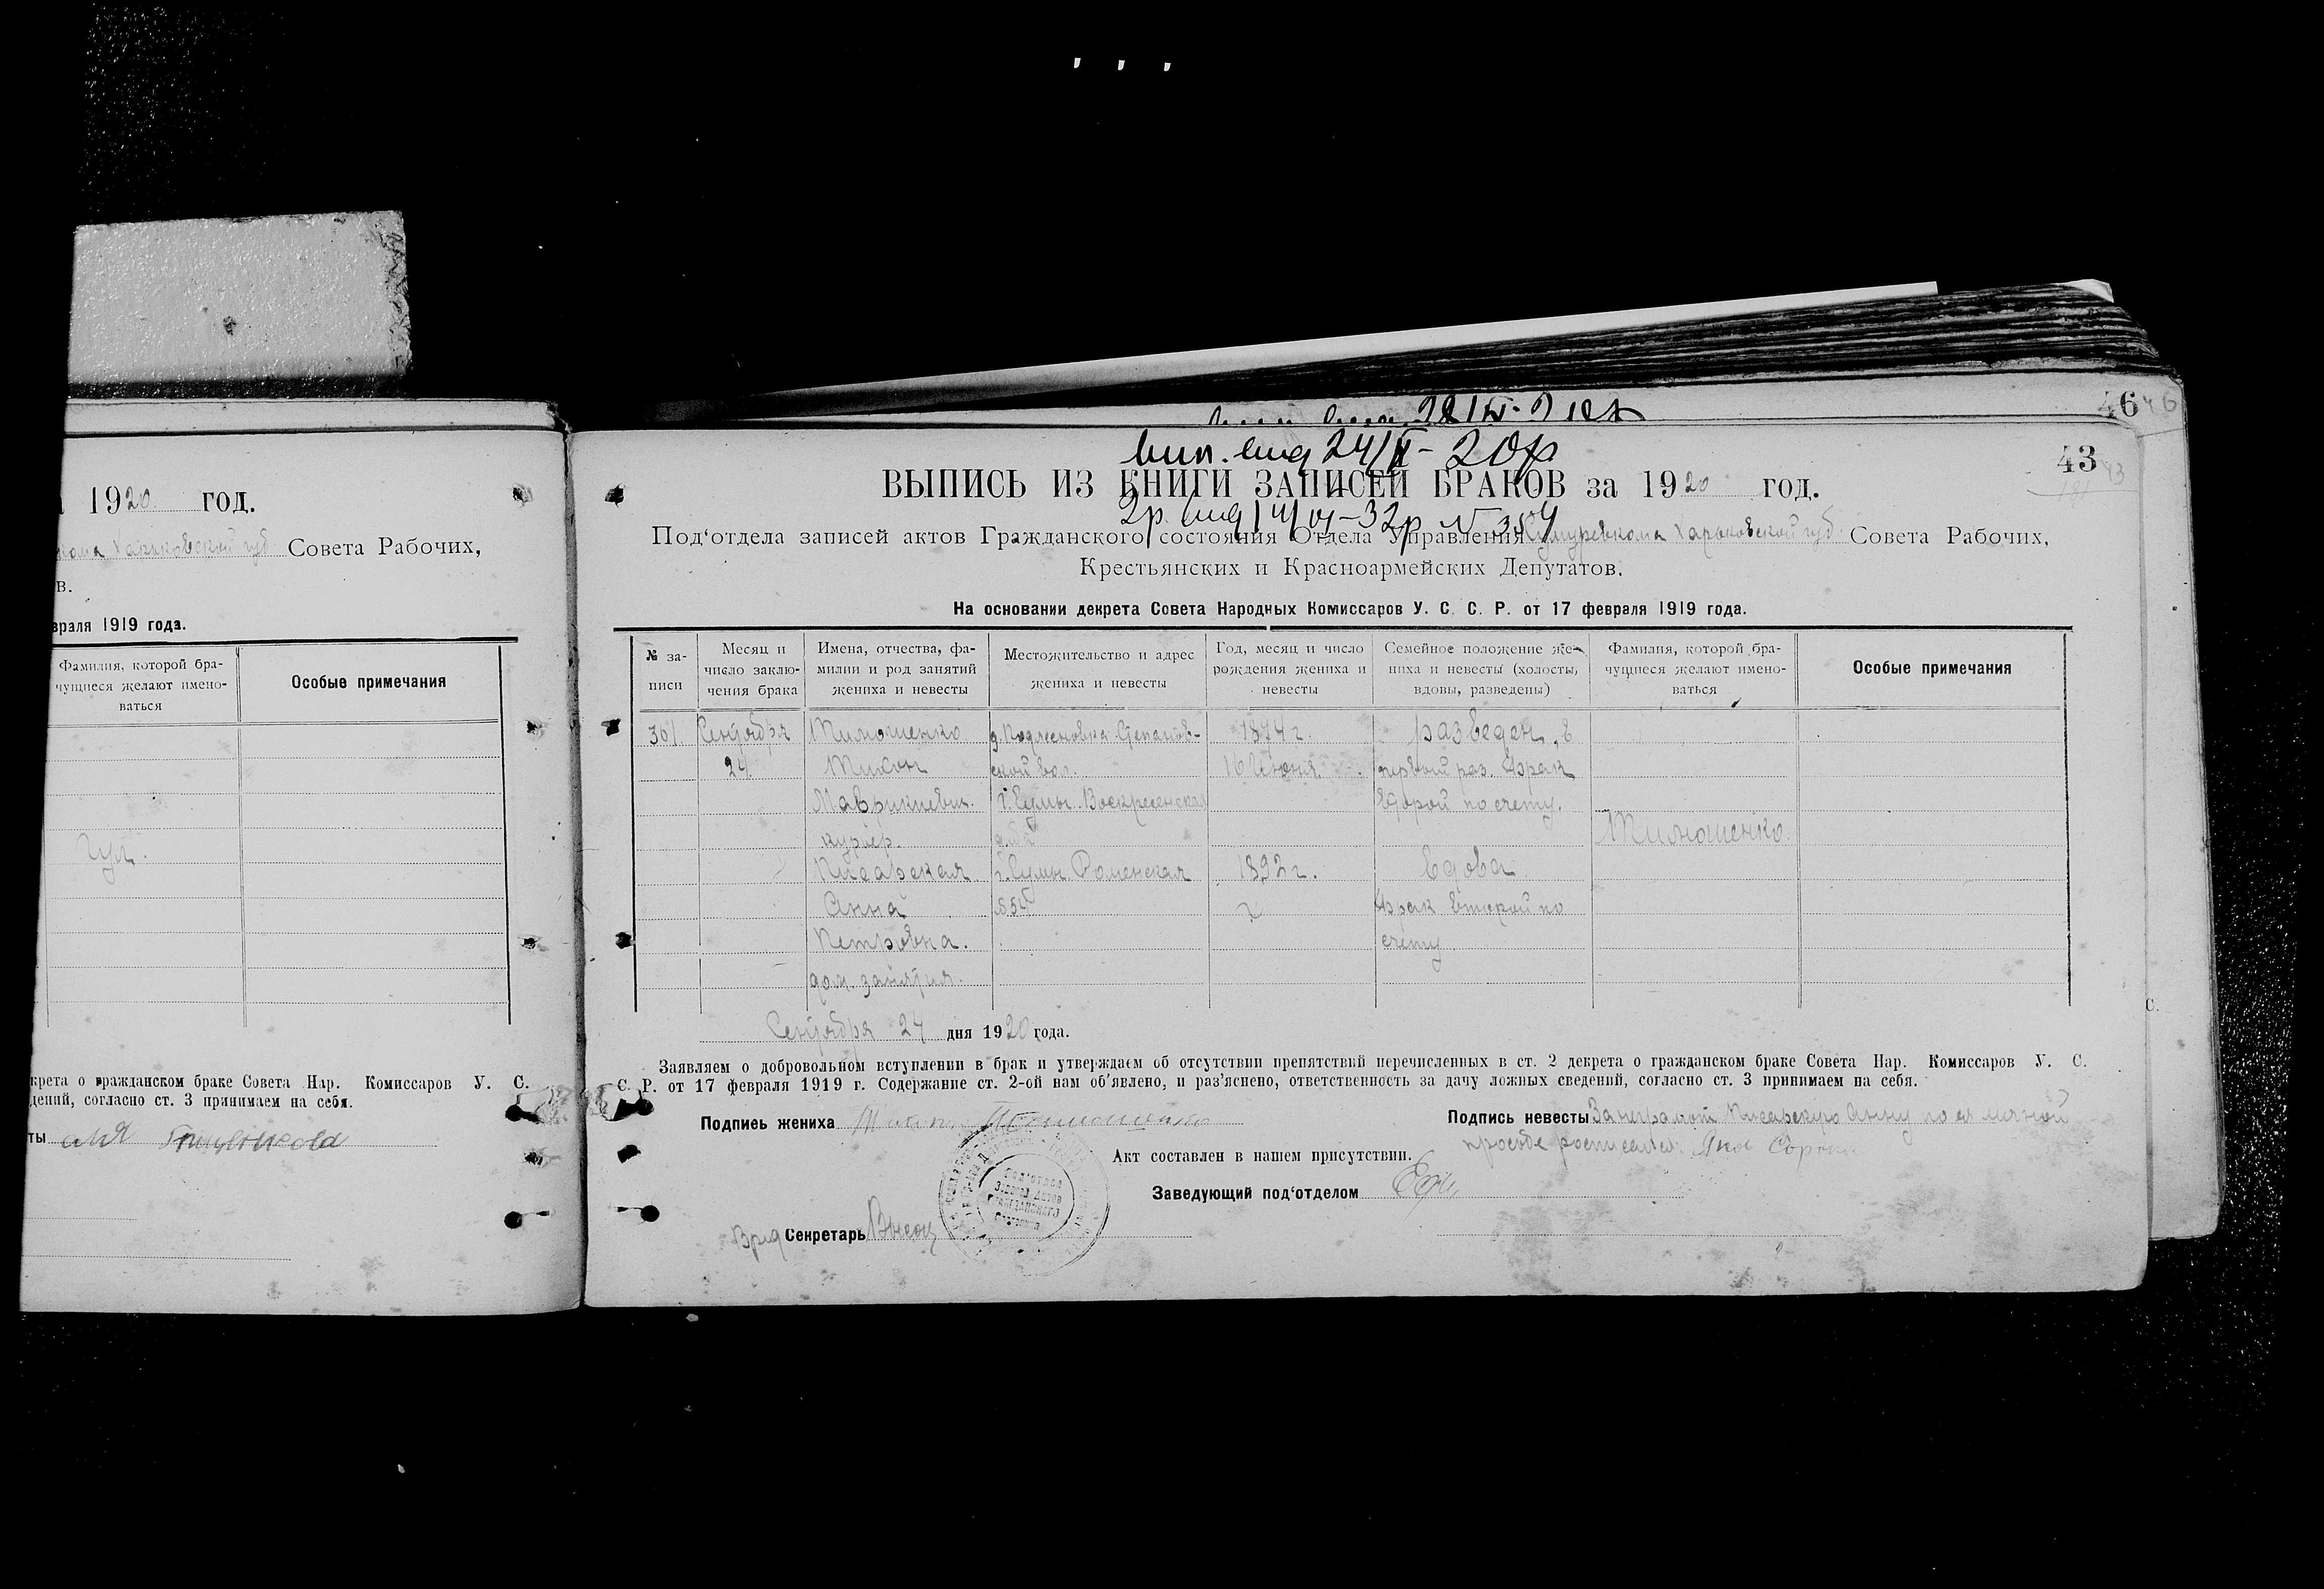 1920 год.
Совета Рабочих,
в.
враля 1919 года.
Фамилия, которой бра-
чущиеся желают имено-
ваться
Особые примечания
крета о гражданском браке Совета Нар. Комиссаров У. С.
дений, согласно ст. 3 принимаем на себя.
ты
46
43
ВЫПИСЬ ИЗ КНИГИ ЗАПИСЕЙ БРАКОВ за 1920 год.
Под‘отдела записей актов Гражданского состояния Отдела Управления Харьковской губ. Совета Рабочих,
Крестьянских и Красноармейских Депутатов.
На основании декрета Совета Народных Комиссаров У. С. С. Р. от 17 февраля 1919 года.
№ за-
писи
Месяц и
число заклю-
чения брака
Имена, отчества, фа-
милии и род занятий
жениха и невесты
Местожительство и адрес
жениха и невесты
Год, месяц и число
рождения жениха и
невесты
Семейное положение же-
ниха и невесты (холосты,
вдовы, разведены)
Фамилия, которой бра-
чущиеся желают имено-
ваться
Особые примечания
361. Сентября Тимошенко д. Подлесновка Степанов- 1874 г. разведен, в
24 Тихон ской вол. 16 Июня первый раз. Брак
Маврикиевич. г. Сумы. Воскресенская второй по счету.
курьер. Тимошенко.
Писарская г. Сумы. Роменская 1892 г. вдова.
Анна 54 Брак второй по
Петровна. счету.
дом. занятия.
Сентября 24 дня 1920 года.
Заявляем о добровольном вступлении в брак и утверждаем об отсутствии препятствий перечисленных в ст. 2 декрета о гражданском браке Совета Нар. Комиссаров У. С.
С. Р. от 17 февраля 1919 г. Содержание ст. 2-ой нам об'явлено, и раз'яснено, ответственность за дачу ложных сведений, согласно ст. 3 принимаем на себя.
Подпись жениха Тихон Тимошенко
Подпись невесты За неграмот. Писарскую Анну по ея личной
просьбе росписался Яков
Акт составлен в нашем присутствии.
Заведующий под‘отделом
Врид Секретарь